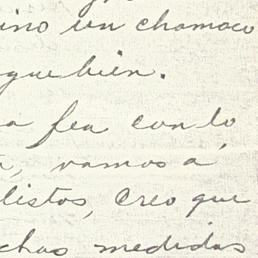 ino un chamaco
que bien.
a fea con lo
, vamos a
listos, creo que
chas medidas